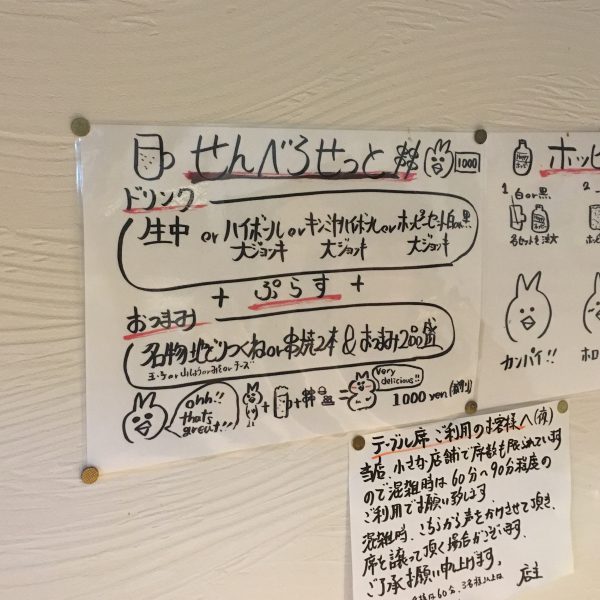 せんべろせっと
1000
ドリンク
生中 or ハイボール or キンミヤハイボール or ホッピーセット白or黒
大ジョッキ 大ジョッキ 大ジョッキ
+ ぷらす +
おつまみ
名物地どりつくね or 串焼2本 & おつまみ2品盛
ohh!!
that's
great!!
+ + =
Very
delicious!!
1000 yen
ホッピ
1 白or黒
カンパイ!!
ホロ
テーブル席ご利用のお客様へ(夜)
当店、小さな店舗で席数も限られています
ので混雑時は60分〜90分程度の
ご利用でお願い致します。
混雑時、こちらから声をかけさせて頂き、
席を譲って頂く場合がございます。
ご了承お願い申し上げます。
店主